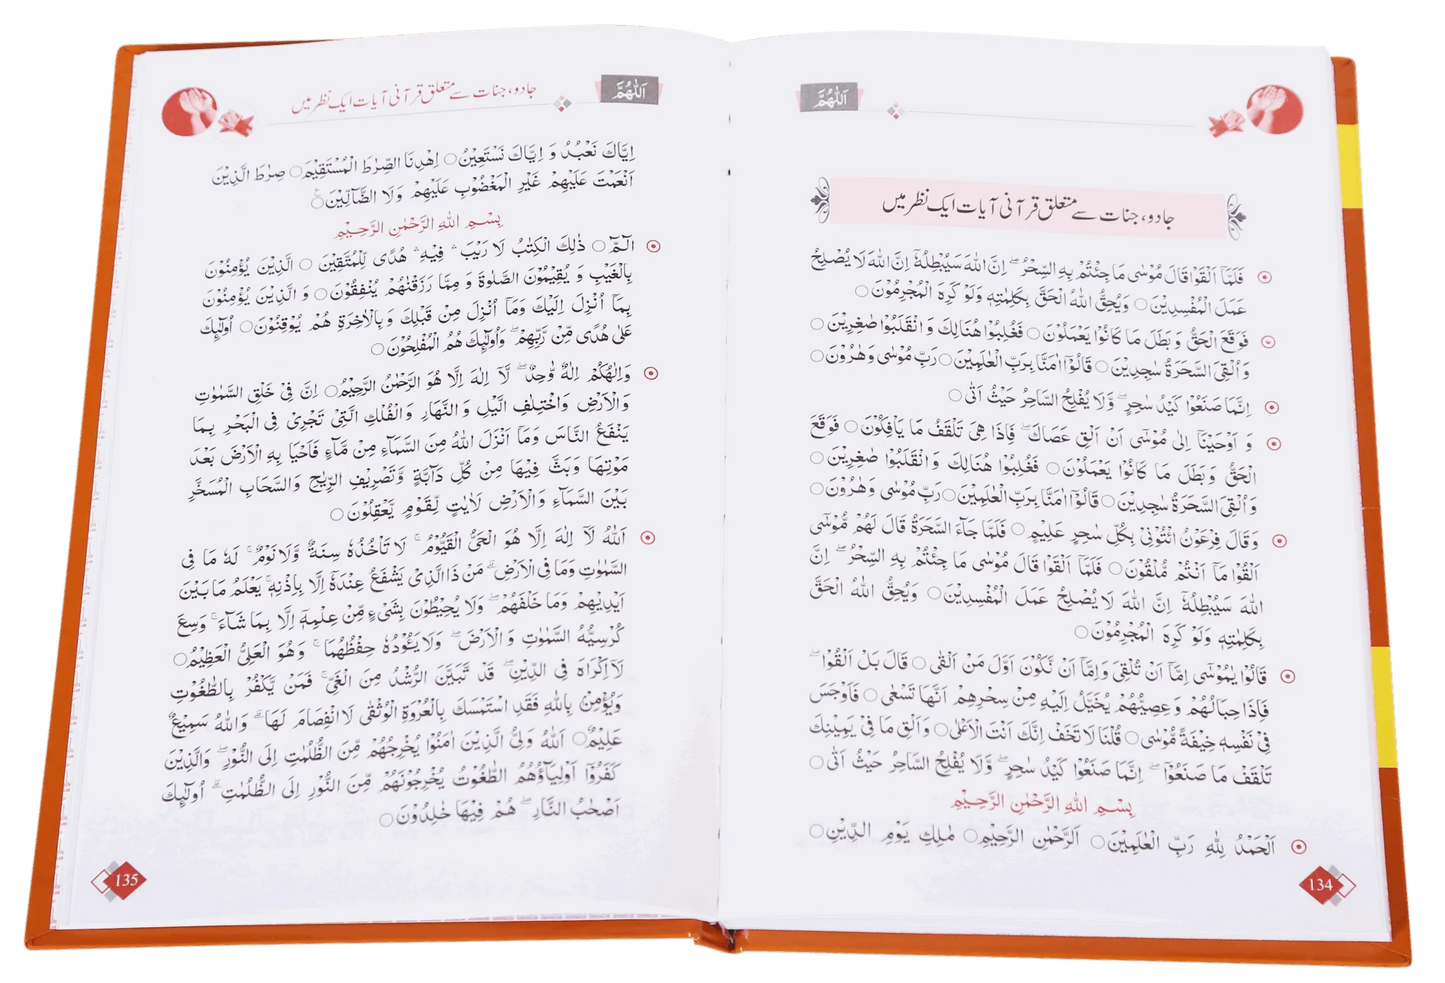 اَللّٰهُمَّ
جادو، جنات سے متعلق قرآنی آیات ایک نظر میں
فَلَمَّاۤ اَلْقَوْا قَالَ مُوْسٰى مَا جِئْتُمْ بِهِ السِّحْرُ ؕ اِنَّ اللّٰهَ سَيُبْطِلُهٗ اِنَّ اللّٰهَ لَا يُصْلِحُ
عَمَلَ الْمُفْسِدِيْنَ○ وَيُحِقُّ اللّٰهُ الْحَقَّ بِكَلِمٰتِهٖ وَلَوْ كَرِهَ الْمُجْرِمُوْنَ○
فَوَقَعَ الْحَقُّ وَبَطَلَ مَا كَانُوْا يَعْمَلُوْنَ○ فَغُلِبُوْا هُنَالِكَ وَانْقَلَبُوْا صٰغِرِيْنَ○
وَاُلْقِىَ السَّحَرَةُ سٰجِدِيْنَ○ قَالُوْۤا اٰمَنَّا بِرَبِّ الْعٰلَمِيْنَ○ رَبِّ مُوْسٰى وَهٰرُوْنَ○
اِنَّمَا صَنَعُوْا كَيْدُ سٰحِرٍ ؕ وَّلَا يُفْلِحُ السَّاحِرُ حَيْثُ اَتٰى○
وَ اَوْحَيْنَاۤ اِلٰى مُوْسٰۤى اَنْ اَلْقِ عَصَاكَ ؕ فَاِذَا هِىَ تَلْقَفُ مَا يَاْفِكُوْنَ○ فَوَقَعَ
الْحَقُّ وَبَطَلَ مَا كَانُوْا يَعْمَلُوْنَ○ فَغُلِبُوْا هُنَالِكَ وَانْقَلَبُوْا صٰغِرِيْنَ○
وَاُلْقِىَ السَّحَرَةُ سٰجِدِيْنَ○ قَالُوْۤا اٰمَنَّا بِرَبِّ الْعٰلَمِيْنَ○ رَبِّ مُوْسٰى وَهٰرُوْنَ○
وَقَالَ فِرْعَوْنُ ائْتُوْنِىْ بِكُلِّ سٰحِرٍ عَلِيْمٍ○ فَلَمَّا جَآءَ السَّحَرَةُ قَالَ لَهُمْ مُّوْسٰۤى
اَلْقُوْا مَاۤ اَنْتُمْ مُّلْقُوْنَ○ فَلَمَّاۤ اَلْقَوْا قَالَ مُوْسٰى مَا جِئْتُمْ بِهِ السِّحْرُ ؕ اِنَّ
اللّٰهَ سَيُبْطِلُهٗ اِنَّ اللّٰهَ لَا يُصْلِحُ عَمَلَ الْمُفْسِدِيْنَ○ وَيُحِقُّ اللّٰهُ الْحَقَّ
بِكَلِمٰتِهٖ وَلَوْ كَرِهَ الْمُجْرِمُوْنَ○
قَالُوْا يٰمُوْسٰۤى اِمَّاۤ اَنْ تُلْقِىَ وَاِمَّاۤ اَنْ نَّكُوْنَ اَوَّلَ مَنْ اَلْقٰى○ قَالَ بَلْ اَلْقُوْا ؕ
فَاِذَا حِبَالُهُمْ وَعِصِيُّهُمْ يُخَيَّلُ اِلَيْهِ مِنْ سِحْرِهِمْ اَنَّهَا تَسْعٰى○ فَاَوْجَسَ
فِىْ نَفْسِهٖ خِيْفَةً مُّوْسٰى○ قُلْنَا لَا تَخَفْ اِنَّكَ اَنْتَ الْاَعْلٰى○ وَاَلْقِ مَا فِىْ يَمِيْنِكَ
تَلْقَفْ مَا صَنَعُوْا ؕ اِنَّمَا صَنَعُوْا كَيْدُ سٰحِرٍ ؕ وَّلَا يُفْلِحُ السَّاحِرُ حَيْثُ اَتٰى○
بِسْمِ اللّٰهِ الرَّحْمٰنِ الرَّحِيْمِ
اَلْحَمْدُ لِلّٰهِ رَبِّ الْعٰلَمِيْنَ○ الرَّحْمٰنِ الرَّحِيْمِ○ مٰلِكِ يَوْمِ الدِّيْنِ○
134
اَللّٰهُمَّ
جادو، جنات سے متعلق قرآنی آیات ایک نظر میں
اِيَّاكَ نَعْبُدُ وَ اِيَّاكَ نَسْتَعِيْنُ○ اِهْدِنَا الصِّرٰطَ الْمُسْتَقِيْمَ○ صِرٰطَ الَّذِيْنَ
اَنْعَمْتَ عَلَيْهِمْ غَيْرِ الْمَغْضُوْبِ عَلَيْهِمْ وَلَا الضَّآلِّيْنَ○
بِسْمِ اللّٰهِ الرَّحْمٰنِ الرَّحِيْمِ
الٓمّٓ○ ذٰلِكَ الْكِتٰبُ لَا رَيْبَ ۛ فِيْهِ ۛ هُدًى لِّلْمُتَّقِيْنَ○ الَّذِيْنَ يُؤْمِنُوْنَ
بِالْغَيْبِ وَ يُقِيْمُوْنَ الصَّلٰوةَ وَ مِمَّا رَزَقْنٰهُمْ يُنْفِقُوْنَ○ وَ الَّذِيْنَ يُؤْمِنُوْنَ
بِمَاۤ اُنْزِلَ اِلَيْكَ وَمَاۤ اُنْزِلَ مِنْ قَبْلِكَ وَبِالْاٰخِرَةِ هُمْ يُوْقِنُوْنَ○ اُولٰٓئِكَ
عَلٰى هُدًى مِّنْ رَّبِّهِمْ ؕ وَاُولٰٓئِكَ هُمُ الْمُفْلِحُوْنَ○
وَاِلٰهُكُمْ اِلٰهٌ وَّاحِدٌ ؕ لَّاۤ اِلٰهَ اِلَّا هُوَ الرَّحْمٰنُ الرَّحِيْمُ○ اِنَّ فِىْ خَلْقِ السَّمٰوٰتِ
وَالْاَرْضِ وَاخْتِلٰفِ الَّيْلِ وَالنَّهَارِ وَالْفُلْكِ الَّتِىْ تَجْرِىْ فِى الْبَحْرِ بِمَا
يَنْفَعُ النَّاسَ وَمَاۤ اَنْزَلَ اللّٰهُ مِنَ السَّمَآءِ مِنْ مَّآءٍ فَاَحْيَا بِهِ الْاَرْضَ بَعْدَ
مَوْتِهَا وَبَثَّ فِيْهَا مِنْ كُلِّ دَآبَّةٍ وَّتَصْرِيْفِ الرِّيٰحِ وَالسَّحَابِ الْمُسَخَّرِ
بَيْنَ السَّمَآءِ وَالْاَرْضِ لَاٰيٰتٍ لِّقَوْمٍ يَّعْقِلُوْنَ○
اَللّٰهُ لَاۤ اِلٰهَ اِلَّا هُوَ الْحَىُّ الْقَيُّوْمُ ۚ لَا تَاْخُذُهٗ سِنَةٌ وَّلَا نَوْمٌ ؕ لَهٗ مَا فِى
السَّمٰوٰتِ وَمَا فِى الْاَرْضِ ؕ مَنْ ذَا الَّذِىْ يَشْفَعُ عِنْدَهٗۤ اِلَّا بِاِذْنِهٖ ؕ يَعْلَمُ مَا بَيْنَ
اَيْدِيْهِمْ وَمَا خَلْفَهُمْ ؕ وَلَا يُحِيْطُوْنَ بِشَىْءٍ مِّنْ عِلْمِهٖۤ اِلَّا بِمَا شَآءَ ۚ وَسِعَ
كُرْسِيُّهُ السَّمٰوٰتِ وَالْاَرْضَ ؕ وَلَا يَـُٔوْدُهٗ حِفْظُهُمَا ۚ وَهُوَ الْعَلِىُّ الْعَظِيْمُ○
لَاۤ اِكْرَاهَ فِى الدِّيْنِ ؕ قَدْ تَّبَيَّنَ الرُّشْدُ مِنَ الْغَىِّ ۚ فَمَنْ يَّكْفُرْ بِالطَّاغُوْتِ
وَيُؤْمِنْۢ بِاللّٰهِ فَقَدِ اسْتَمْسَكَ بِالْعُرْوَةِ الْوُثْقٰى لَا انْفِصَامَ لَهَا ؕ وَاللّٰهُ سَمِيْعٌ
عَلِيْمٌ○ اَللّٰهُ وَلِىُّ الَّذِيْنَ اٰمَنُوْا يُخْرِجُهُمْ مِّنَ الظُّلُمٰتِ اِلَى النُّوْرِ ؕ وَالَّذِيْنَ
كَفَرُوْۤا اَوْلِيٰٓـُٔهُمُ الطَّاغُوْتُ يُخْرِجُوْنَهُمْ مِّنَ النُّوْرِ اِلَى الظُّلُمٰتِ ؕ اُولٰٓئِكَ
اَصْحٰبُ النَّارِ ۚ هُمْ فِيْهَا خٰلِدُوْنَ○
135